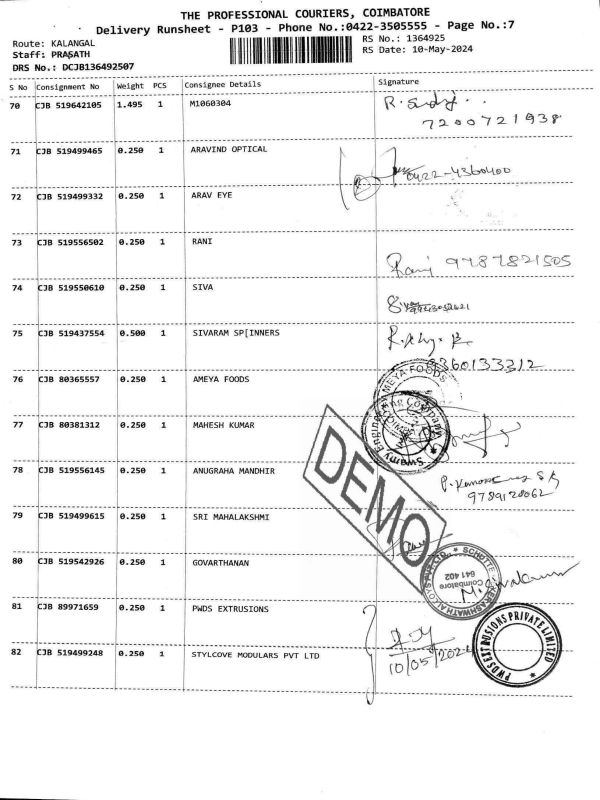 THE PROFESSIONAL COURIERS, COIMBATORE
Delivery Runsheet - P103 - Phone No.:0422-3505555 - Page No.:7
Route: KALANGAL
RS No.: 1364925
Staff: PRASATH
RS Date: 10-May-2024
DRS No.: DCJB136492507
S No Consignment No Weight PCS Consignee Details Signature
70 CJB 519642105 1.495 1 M1060304
7200721938
71 CJB 519499465 0.250 1 ARAVIND OPTICAL
0422-4360400
72 CJB 519499332 0.250 1 ARAV EYE
73 CJB 519556502 0.250 1 RANI
Rani 9787821505
74 CJB 519550610 0.250 1 SIVA
75 CJB 519437554 0.500 1 SIVARAM SP[INNERS
9360133312
76 CJB 80365557 0.250 1 AMEYA FOODS
AMEYA FOODS
77 CJB 80381312 0.250 1 MAHESH KUMAR
Swamy Engineering Company
78 CJB 519556145 0.250 1 ANUGRAHA MANDHIR
9789120062
DEMO
79 CJB 519499615 0.250 1 SRI MAHALAKSHMI
80 CJB 519542926 0.250 1 GOVARTHANAN
Coimbatore
641 402
81 CJB 89971659 0.250 1 PWDS EXTRUSIONS
PWDS EXTRUSIONS PRIVATE LIMITED
82 CJB 519499248 0.250 1 STYLCOVE MODULARS PVT LTD
10/05/2024